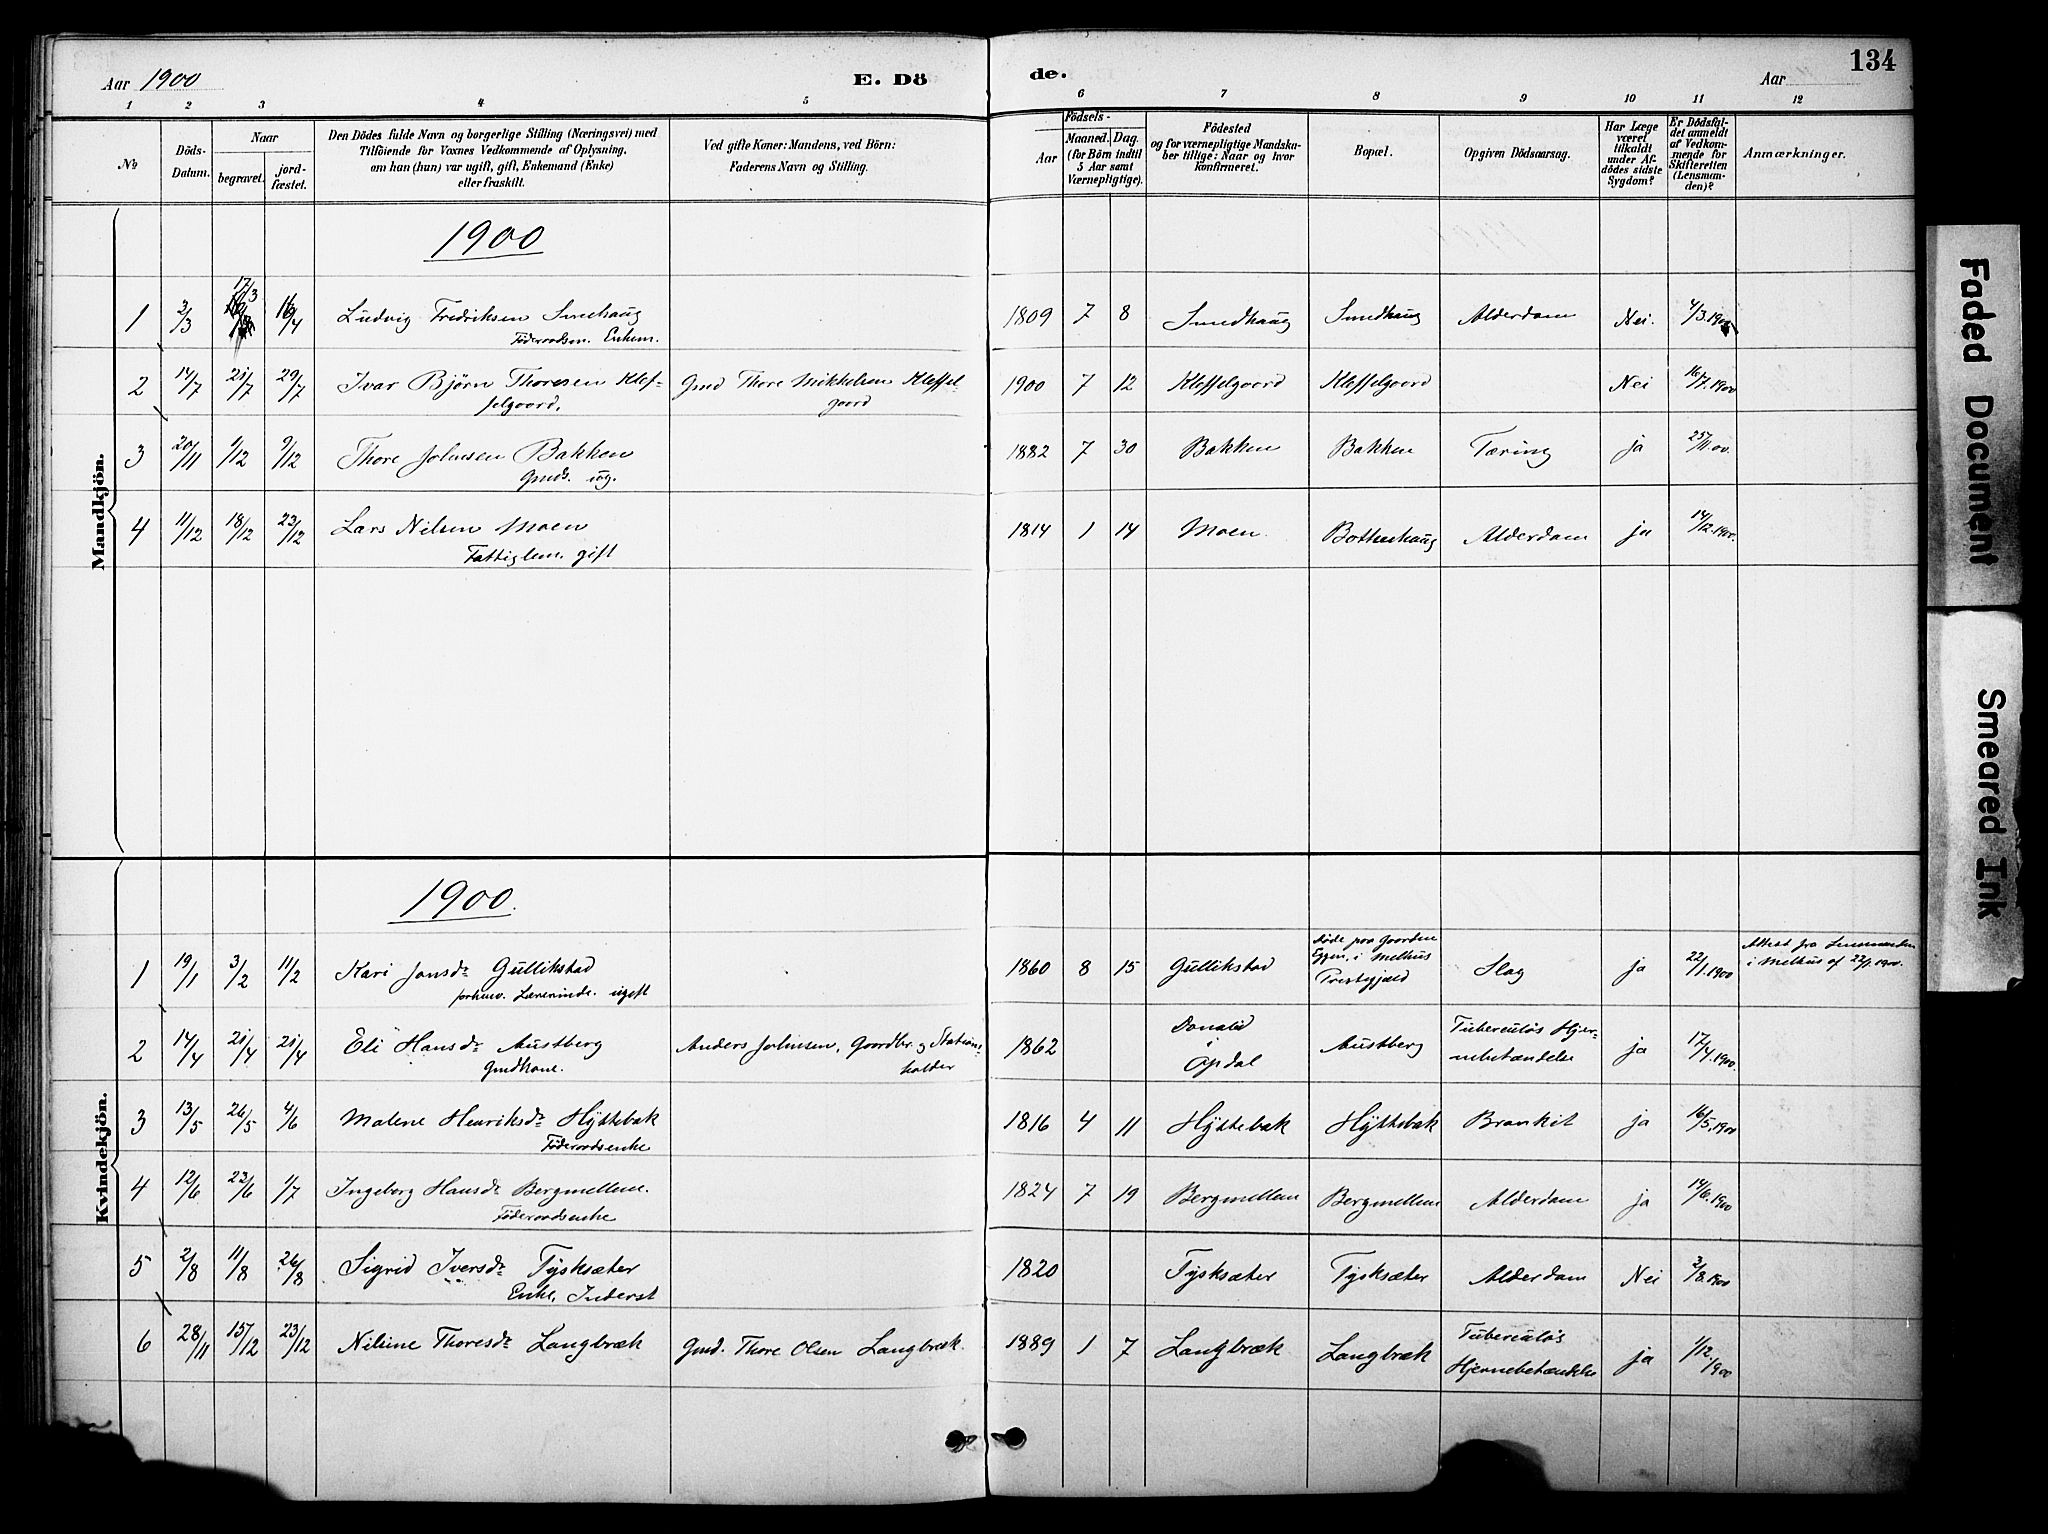 134
Aar 1900
E. Dö
de.
Aar
1 2 3 4 5 6 7 8 9 10 11 12
No
Döds-Datum.
Naar
begravet.
jordfæstet.
Den Dödes fulde Navn og borgerlige Stilling (Næringsvei) med
Tilföiende for Voxnes Vedkommende af Oplysning,
om han (hun) var ugift, gift, Enkemand (Enke)
eller fraskilt.
Ved gifte Koner: Mandens, ved Börn:
Faderens Navn og Stilling.
Födsels-
Aar
Maaned. Dag.
(for Börn indtil
5 Aar samt
Værnepligtige).
Födested
og for værnepligtige Mandskaber
tillige: Naar og hvor
konfirmeret.
Bopæl.
Opgiven Dödsaarsag.
Har Læge
været
tilkaldt
under Afdödes
sidste
Sygdom?
Er Dödsfaldet
anmeldt
af Vedkommende
for
Skifteretten
(Lensmanden)?
Anmærkninger.
Mandkjön.
1900
1 2/3 17/3 16/4 Ludvig Fredriksen Smedhaug 1809 7 8 Smedhaug Smedhaug Alderdom Nei. 4/3.1900
Föderaadsm. Enkem.
2 14/7 21/7 29/7 Ivar Bjørn Thoresen Klef- Gmd Thore Mikkelsen Kleffel- 1900 7 12 Kleffelgaard Kleffelgaard Nei 16/7.1900
felgaard. gaard
3 20/11 1/12 9/12 Thore Johnsen Bakken 1882 7 30 Bakken Bakken Tæring ja 25/11.00.
Gmds. ug.
4 11/12 18/12 23/12 Lars Nilsen Moen 1814 1 14 Moen. Bottenhaug Alderdom ja 14/12.1900.
Fattiglem. gift
Kvindekjön.
1900.
1 19/1 3/2 11/2 Kari Jonsdr Gullikstad 1860 8 15 Gullikstad døde paa Gaarden Eggen, i Melhus Prestegjæld Slag ja 22/1.1900 Attest fra Lensmanden i Melhus af 22/1.1900.
forhenv. Lærerinde. ugift
2 14/4 21/4 21/4 Eli Hansdr Austberg Anders Johnsen, Gaardbr. og Stations- 1862 i Opdal Austberg Tuberculøs Hjer- ja 17/4.1900.
Gmdkone. holder nebetændelse
3 13/5 26/5 4/6 Malene Henriksdr Hyttebak 1816 4 11 Hyttebak Hyttebak Bronkit ja 16/5.1900
Föderaadsenke
4 12/6 23/6 1/7 Ingeborg Hansdr Bergmellem. 1824 7 19 Bergmellem Bergmellem Alderdom ja 14/6.1900
Föderaadsenke
5 2/8 11/8 26/8 Sigrid Iversdr Tysksæter 1820 Tysksæter Tysksæter Alderdom Nei 3/8.1900
Enke, Inderst
6 28/11 15/12 23/12 Nilsine Thoresdr Langbræk Gmd. Thore Olsen Langbræk. 1889 1 7 Langbræk Langbræk Tuberculøs ja 1/12.1900
Hjernebetændelse
Faded Document
Smeared Ink